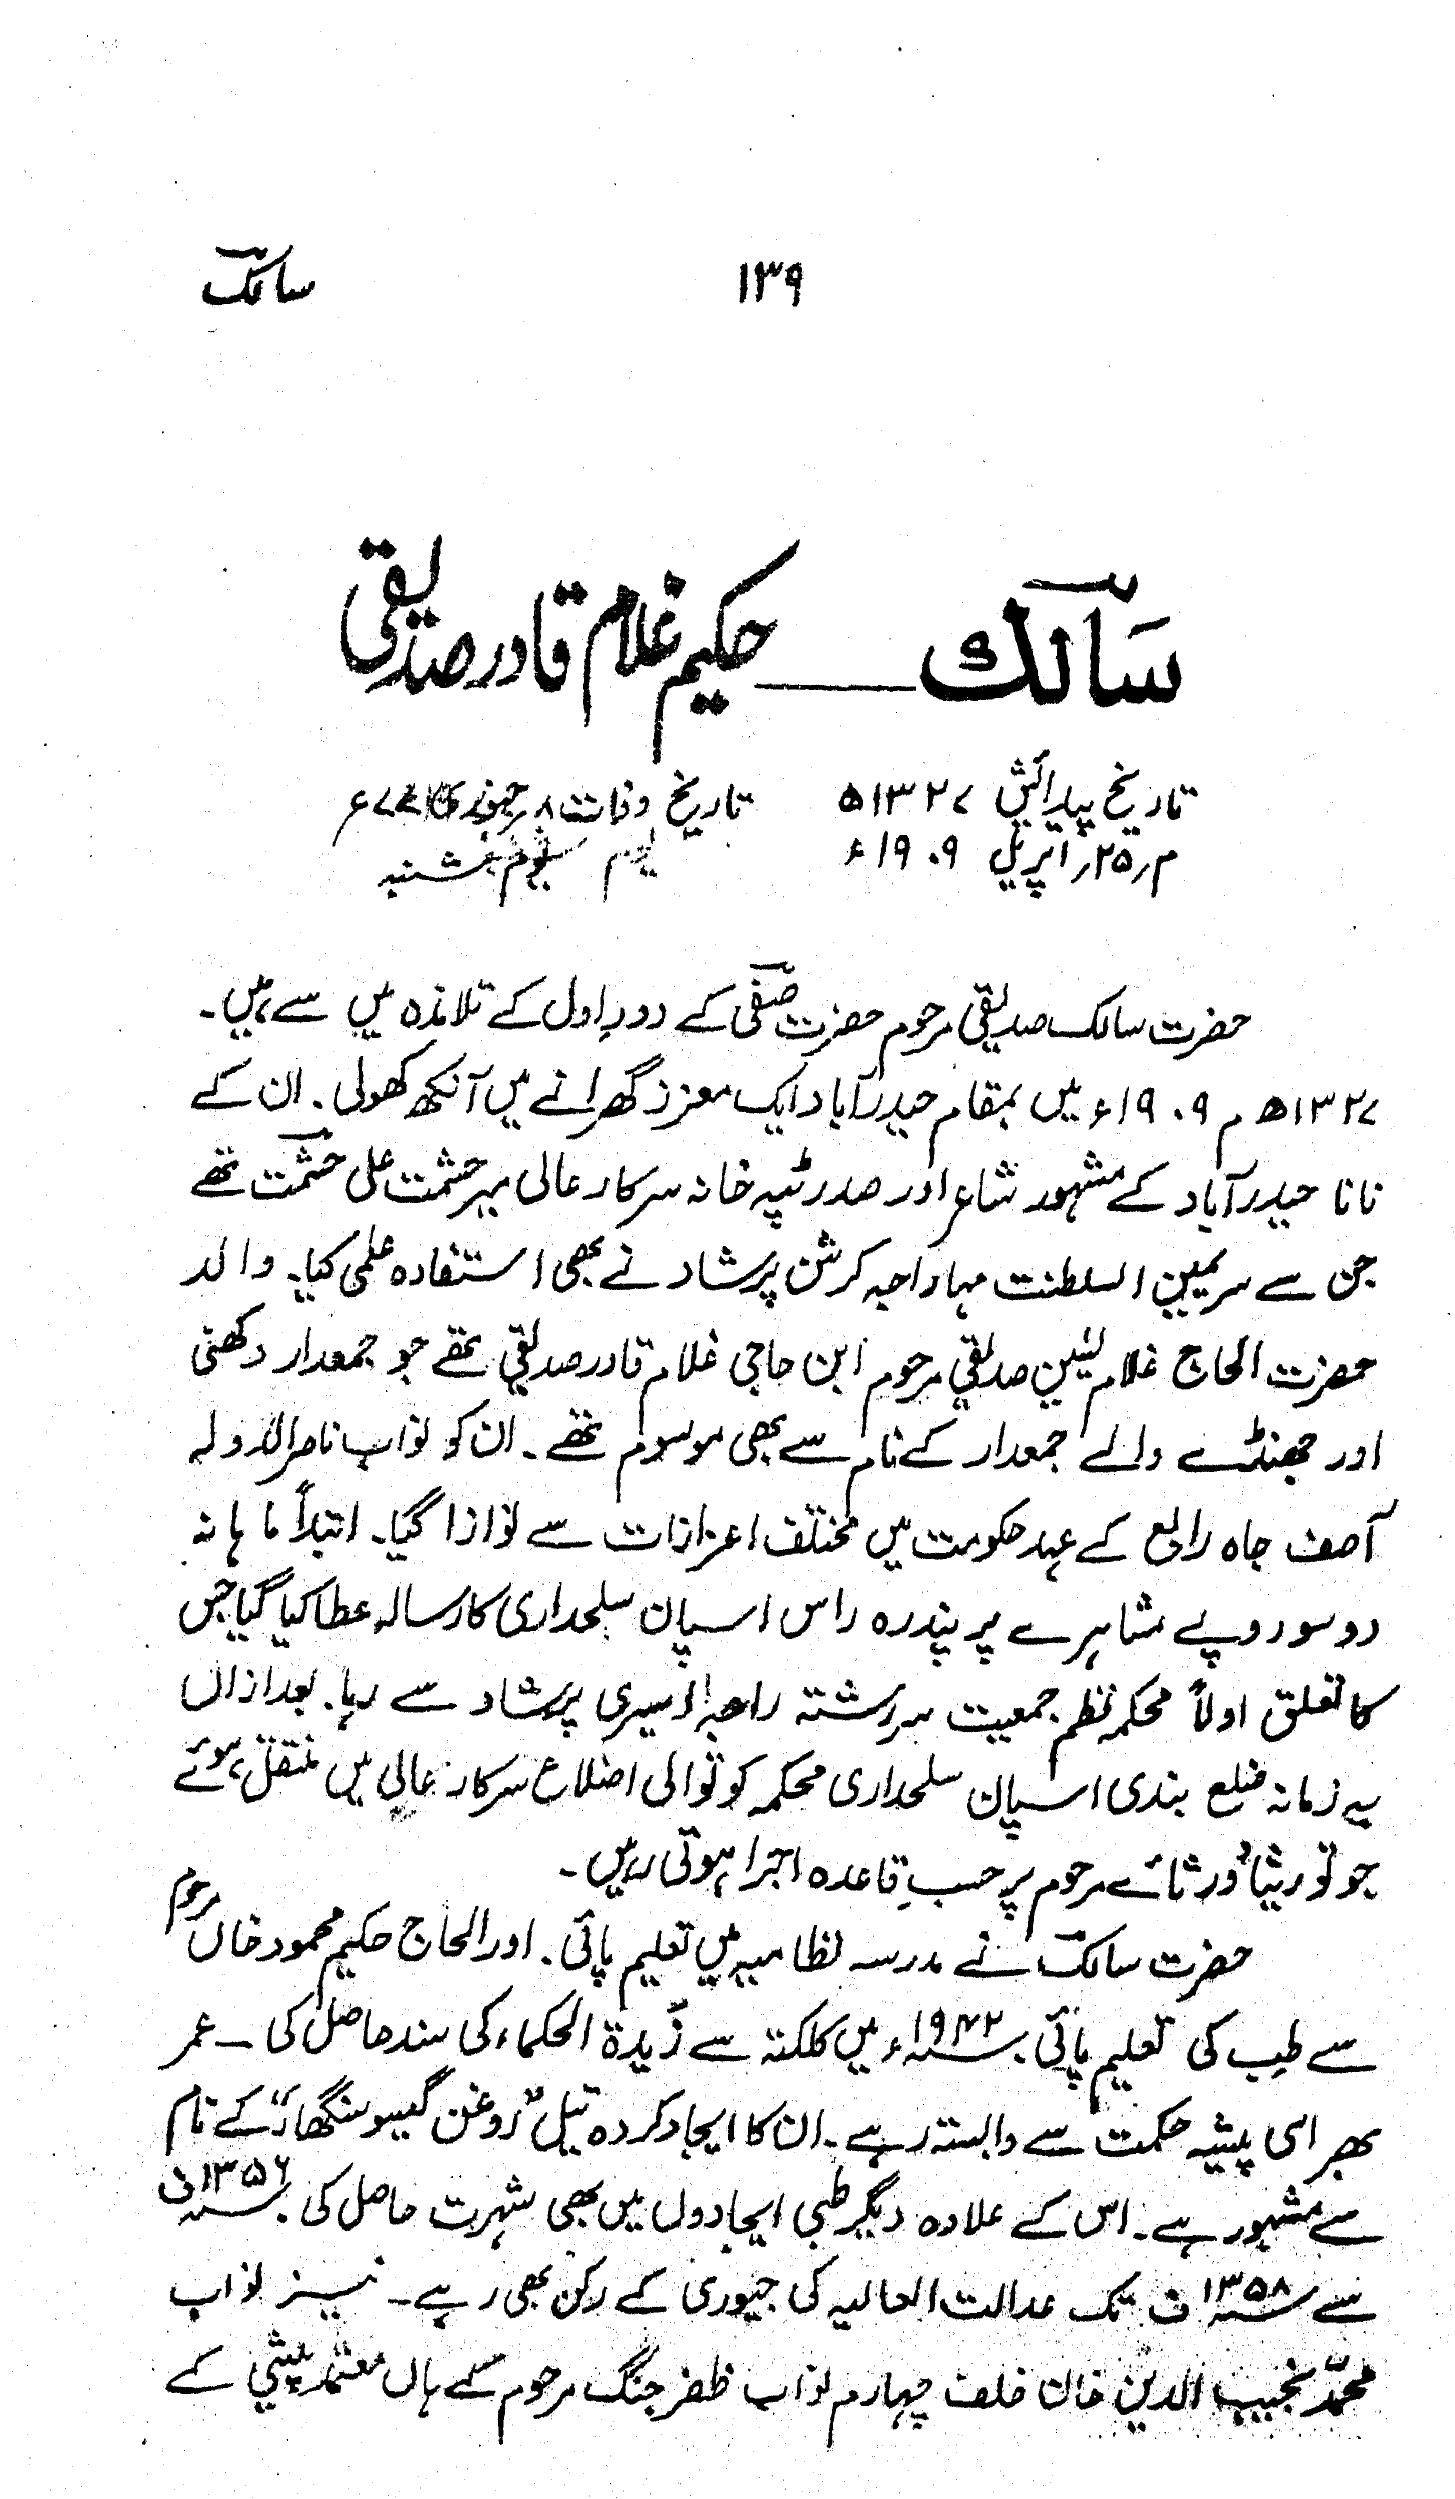 سالکؔ ۱۳۹
سالکؔ ــــــ حکیم غلام قادر صدیقی
تاریخ پیدائش ۱۳۲۷ھ تاریخ وفات ۸ر جنوری
م ۲۵ر اپریل ۱۹۰۹ء
حضرت سالک صدیقی مرحوم حضرت صفیؔ کے دورِ اول کے تلامذہ میں سے ہیں۔
۱۳۲۷ھ م ۱۹۰۹ء میں بمقام حیدرآباد ایک معزز گھرانے میں آنکھ کھولی۔ ان کے
نانا حیدرآباد کے مشہور شاعر اور صدر ٹپہ خانہ سرکار عالی میر حشمت علی حشمتؔ تھے
جن سے سر یمین السلطنت مہاراجہ کرشن پرشاد نے بھی استفادہ علمی کیا۔ والد
حضرت الحاج غلام یٰسین صدیقی مرحوم ابن حاجی غلام قادر صدیقی تھے جو جمعدار دکھنی
اور جھنڈے والے جمعدار کے نام سے بھی موسوم تھے۔ ان کو نواب ناصر الدولہ
آصف جاہ رابع کے عہد حکومت میں مختلف اعزازات سے نوازا گیا۔ ابتدأً ماہانہ
دو سو روپے مشاہرے پر پندرہ راس اسپان سلحداری کا رسالہ عطا کیا گیا جس
کا تعلق اولاً محکمہ نظم جمعیت سررشتہ راجہ ایسری پرشاد سے رہا۔ بعد ازاں
یہ زمانہ ضلع بندی اسپان سلحداری محکمہ کوتوالی اضلاع سرکار عالی میں منتقل ہوئے
جو توریثاً ورثائے مرحوم پر حسبِ قاعدہ اجرا ہوتی رہیں۔
حضرت سالکؔ نے مدرسہ نظامیہ میں تعلیم پائی۔ اور الحاج حکیم محمود خاں مرحوم
سے طب کی تعلیم پائی۔ ۱۹۴۲ء میں کلکتہ سے زبدۃ الحکماء کی سند حاصل کی ــ عمر
بھر اسی پیشہ حکمت سے وابستہ رہے۔ ان کا ایجاد کردہ تیل "روغن گیسو سنگھار" کے نام
سے مشہور ہے۔ اس کے علاوہ دیگر طبی ایجادوں میں بھی شہرت حاصل کی۔ ۱۳۵۶ ف
سے ۱۳۵۸ ف تک عدالت العالیہ کی جیوری کے رکن بھی رہے۔ نیز نواب
محمد نجیب الدین خان خلف چہارم نواب ظفر جنگ مرحوم کے ہاں معتمد پیشی کے